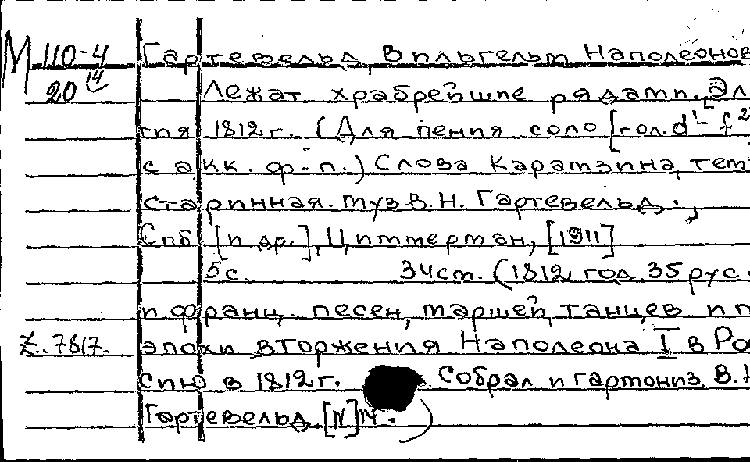 М 110-4 Гартевельд, Вильгельм Наполеонов
20 14 Лежат храбрейшие рядами. [Эле
гия 1812 г. (Для пения соло [гол. d¹-f²
с акк. ф.-п.) Слова Карамзина, тем
старинная. Муз В. Н. Гартевельд.,
Спб [и др.], Циммерман, [1911]
5 с. 34 см. (1812 год. 35 рус.
и франц. песен, маршей, танцев и п
Z. 7817. эпохи вторжения Наполеона I в Ро
сию в 1812 г. Собрал и гармониз. В.
Гартевельд. [N] 14.)